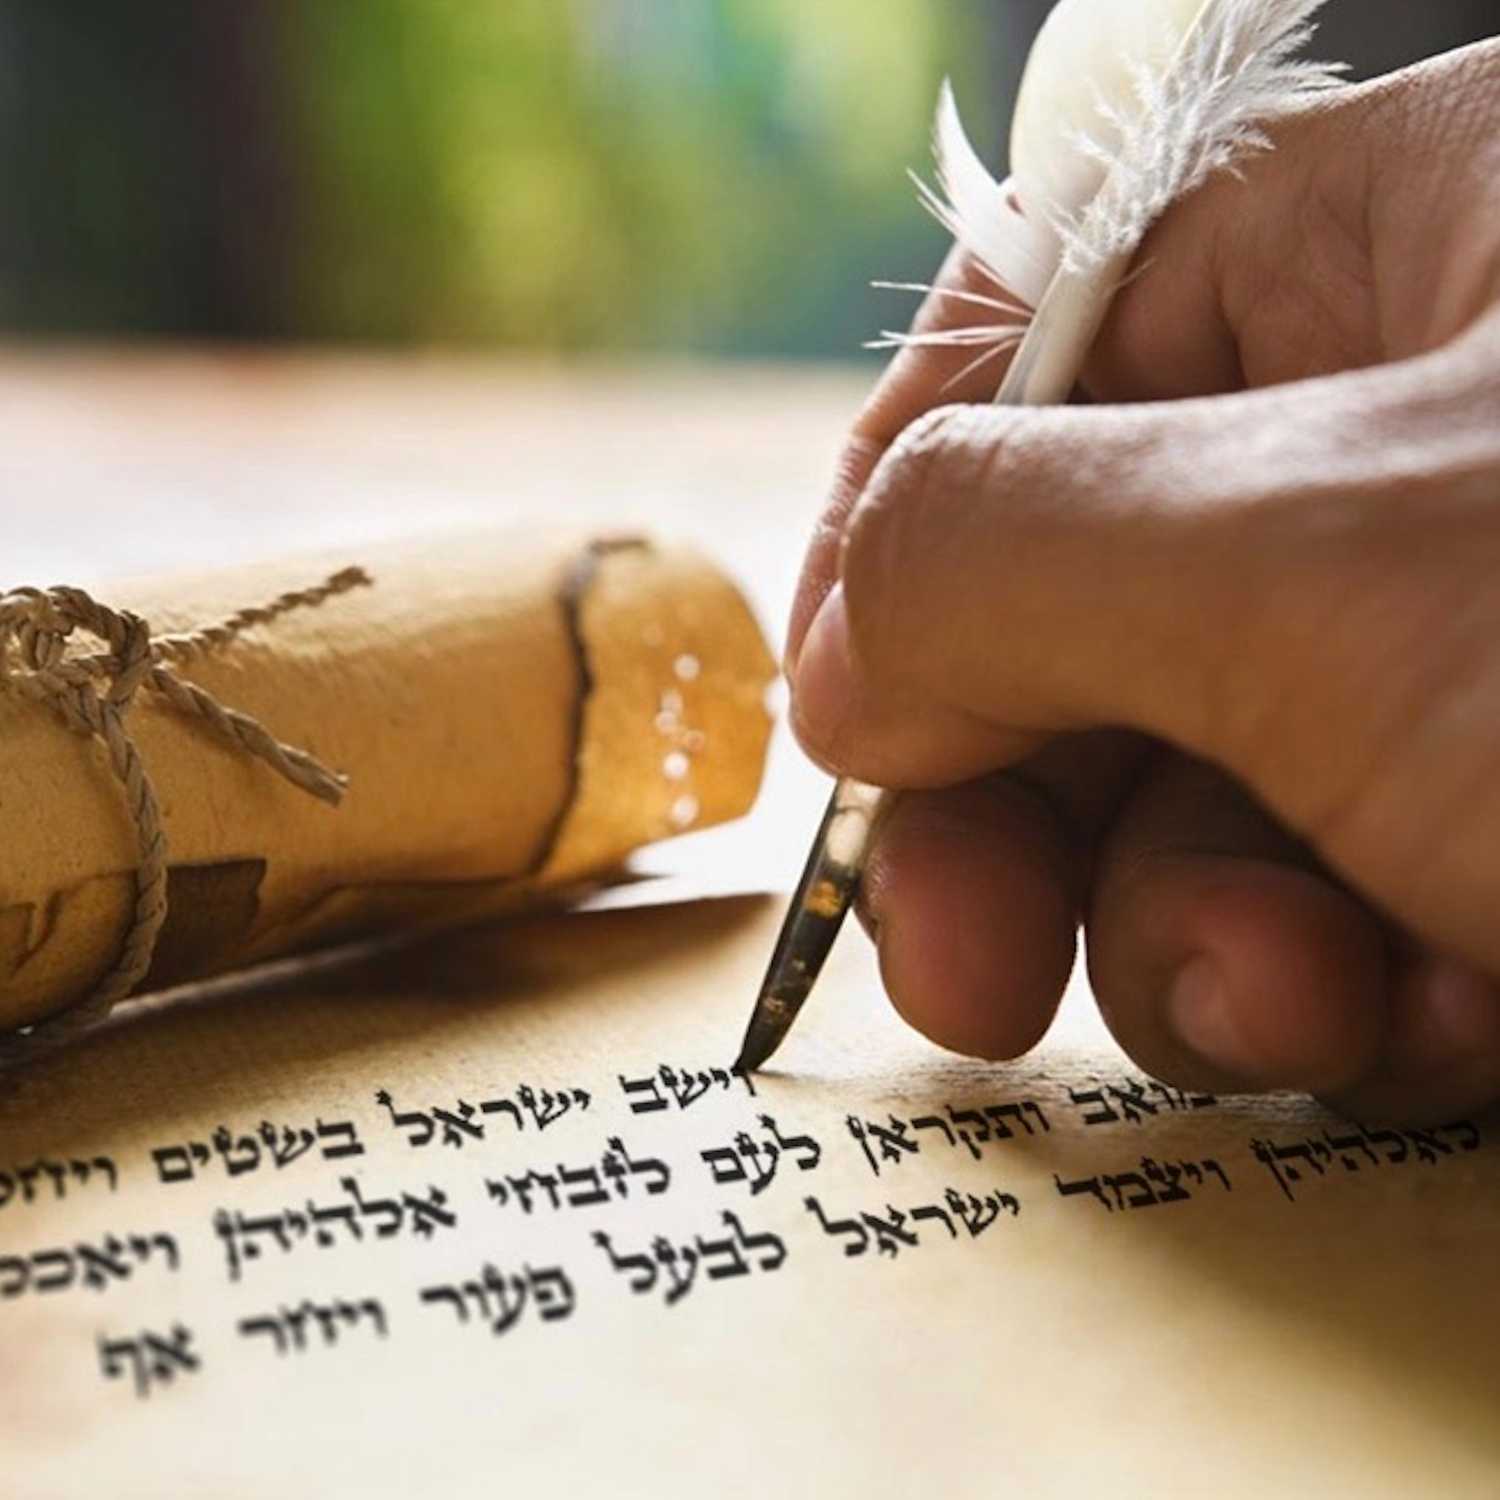 וישב ישראל בשטים
מואב ותקראן לעם לזבחי אלהיהן
לאלהיהן ויצמד ישראל לבעל פעור ויחר אף